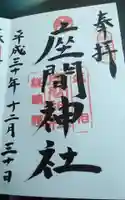 奉拝
座間神社
平成三十年十二月三十日